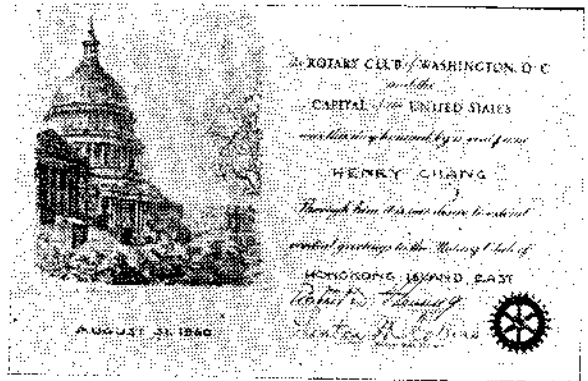 The ROTARY CLUB of WASHINGTON, D C
and the
CAPITAL of the UNITED STATES
are this day honored by a visit from
HENRY CHANG
Through him it is our desire to extend
cordial greetings to the Rotary Club of
HONGKONG ISLAND EAST
AUGUST 31, 1960